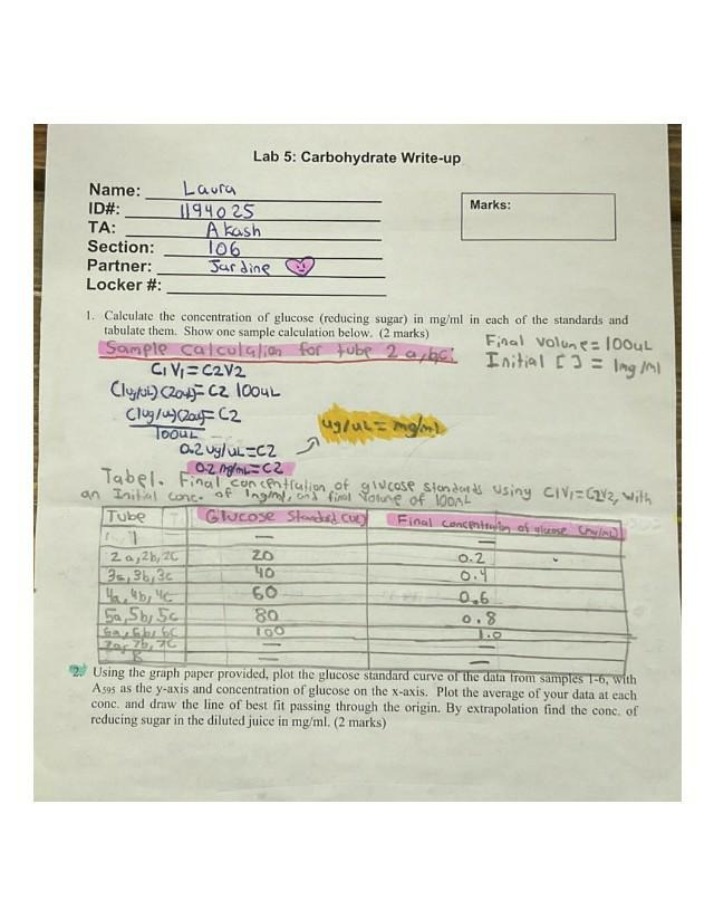 Lab 5: Carbohydrate Write-up
Name: Laura
ID#: 1194025
TA: Akash
Section: 106
Partner: Jardine
Locker #:
Marks:
1. Calculate the concentration of glucose (reducing sugar) in mg/ml in each of the standards and
tabulate them. Show one sample calculation below. (2 marks)
Final Volume = 100uL
Initial [ ] = 1mg/ml
Sample calculation for tube 2 a,b,c:
C1V1 = C2V2
(1ug/uL)(20uL) = C2 100uL
(1ug/uL)(20uL) = C2
100uL
ug/uL = mg/mL
0.2 ug/uL = C2
0.2 mg/mL = C2
Table 1. Final concentration of glucose standards using C1V1=C2V2, with
an Initial conc. of 1mg/mL, and final volume of 100uL
Tube Glucose Standard (uL) Final concentration of glucose (mg/mL)
1 — —
2a, 2b, 2c 20 0.2
3a, 3b, 3c 40 0.4
4a, 4b, 4c 60 0.6
5a, 5b, 5c 80 0.8
6a, 6b, 6c 100 1.0
7a, 7b, 7c — —
8 — —
2. Using the graph paper provided, plot the glucose standard curve of the data from samples 1-6, with
A595 as the y-axis and concentration of glucose on the x-axis. Plot the average of your data at each
conc. and draw the line of best fit passing through the origin. By extrapolation find the conc. of
reducing sugar in the diluted juice in mg/ml. (2 marks)